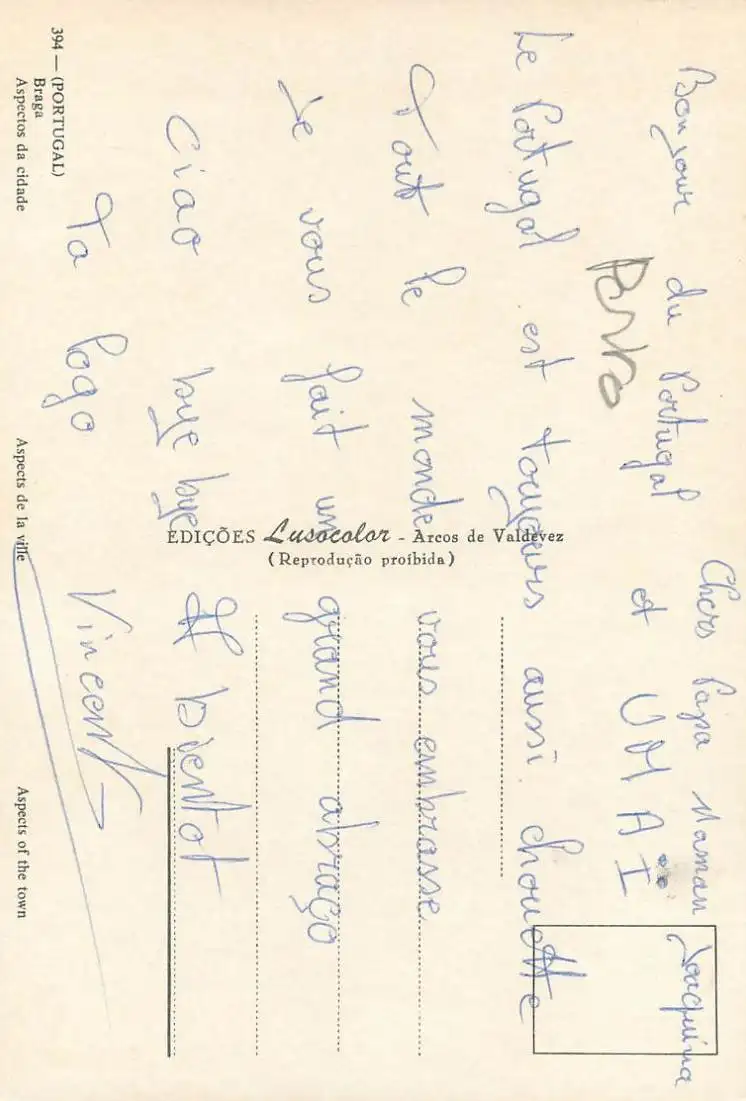 Chers Papa Maman Joaquina
Bonjour du Portugal et UMAI
Porto
Le Portugal est toujours aussi chouette
Tout le monde vous embrasse
Je vous fait un grand abraço
Ciao bye bye A bientot
Ta logo Vincent
EDIÇÕES Lusocolor - Arcos de Valdevez
(Reprodução proíbida)
394 — (PORTUGAL)
Braga
Aspectos da cidade Aspects de la ville Aspects of the town